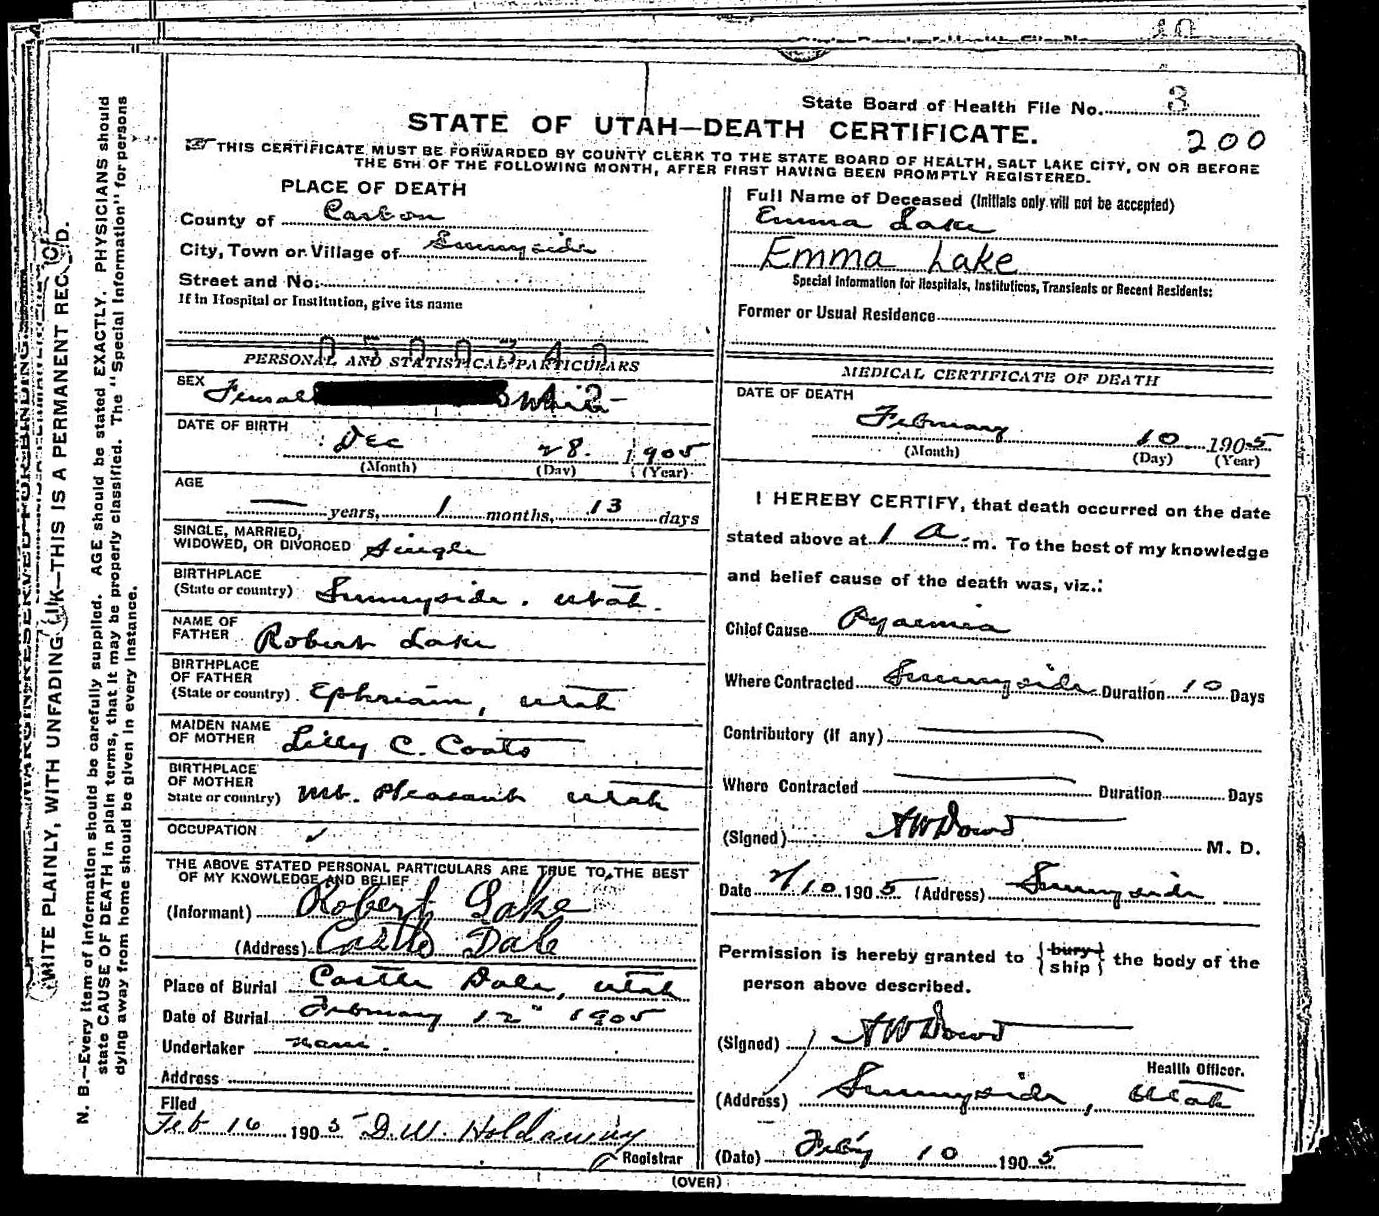 State Board of Health File No. 3
STATE OF UTAH—DEATH CERTIFICATE.
200
THIS CERTIFICATE MUST BE FORWARDED BY COUNTY CLERK TO THE STATE BOARD OF HEALTH, SALT LAKE CITY, ON OR BEFORE
THE 5TH OF THE FOLLOWING MONTH, AFTER FIRST HAVING BEEN PROMPTLY REGISTERED.
PLACE OF DEATH
County of Carbon
City, Town or Village of Sunnyside
Street and No.
If in Hospital or Institution, give its name
PERSONAL AND STATISTICAL PARTICULARS
SEX Female White
DATE OF BIRTH
Dec 28. 1905
(Month) (Day) (Year)
AGE
— years, 1 months, 13 days
SINGLE, MARRIED,
WIDOWED, OR DIVORCED Single
BIRTHPLACE
(State or country) Sunnyside. Utah.
NAME OF
FATHER Robert Lake
BIRTHPLACE
OF FATHER
(State or country) Ephriam, Utah
MAIDEN NAME
OF MOTHER Lilly C. Coats
BIRTHPLACE
OF MOTHER
State or country) Mt. Pleasant Utah
OCCUPATION ✓
THE ABOVE STATED PERSONAL PARTICULARS ARE TRUE TO THE BEST
OF MY KNOWLEDGE AND BELIEF
(Informant) Robert Lake
(Address) Castle Dale
Place of Burial Castle Dale, Utah
Date of Burial February 12" 1905
Undertaker
Address
Filed
Feb 16 1905 D.W. Holdaway
Registrar
Full Name of Deceased (Initials only will not be accepted)
Emma Lake
Emma Lake
Special Information for Hospitals, Institutions, Transients or Recent Residents:
Former or Usual Residence
MEDICAL CERTIFICATE OF DEATH
DATE OF DEATH
February 10 1905
(Month) (Day) (Year)
I HEREBY CERTIFY, that death occurred on the date
stated above at 1 a. m. To the best of my knowledge
and belief cause of the death was, viz.:
Chief Cause Pyaemia
Where Contracted Sunnyside Duration 10 Days
Contributory (if any) —
Where Contracted — Duration Days
(Signed) AW Dowd M. D.
Date 2/10 1905 (Address) Sunnyside
Permission is hereby granted to {bury ship} the body of the
person above described.
(Signed) AW Dowd
Health Officer.
(Address) Sunnyside, Utah
(Date) Feby 10 1905
(OVER)
WRITE PLAINLY, WITH UNFADING INK—THIS IS A PERMANENT RECORD.
N. B.—Every item of information should be carefully supplied. AGE should be stated EXACTLY. PHYSICIANS should
state CAUSE OF DEATH in plain terms, that it may be properly classified. The "Special Information" for persons
dying away from home should be given in every instance.